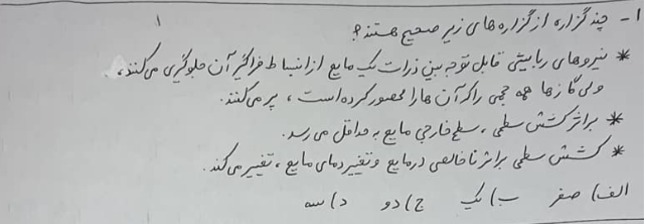 ۱
۱- چند گزاره از گزاره های زیر صحیح هستند؟
* نیروهای ربایشی قابل توجه بین ذرات یک مایع از انبساط فراگیر آن جلوگیری می‌کنند،
ولی گازها همه حجمی راکه آن هارا محصور کرده است، پر می‌کنند.
* براثر کشش سطحی، سطح خارجی مایع به حداقل می رسد.
* کشش سطحی براثر ناخالصی درمایع و تغییر دمای مایع، تغییر می‌کند.
الف) صفر ب) یک ج) دو د) سه